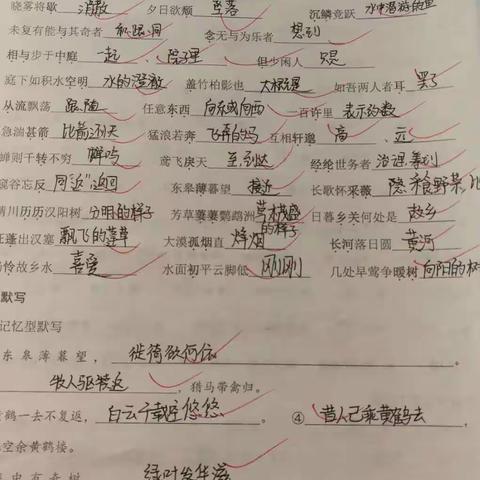 晓雾将歇 消散 夕日欲颓 坠落 沉鳞竞跃 水中潜游的鱼
未复有能与其奇者 参与 念无与为乐者 想到
相与步于中庭 一起、院里 但少闲人 只是
庭下如积水空明 水的澄澈 盖竹柏影也 大概是 如吾两人者耳 罢了
从流飘荡 跟随 任意东西 向东或向西 一百许里 表示约数
急湍甚箭 比箭还快 猛浪若奔 飞奔的马 互相轩邈 高、远
蝉则千转不穷 鸟鸣 鸢飞戾天 至、到达 经纶世务者 治理、筹划
窥谷忘反 同“返”返回 东皋薄暮望 接近 长歌怀采薇 隐
晴川历历汉阳树 分明的样子 芳草萋萋鹦鹉洲 草木茂盛的样子 日暮乡关何处是 故乡
征蓬出汉塞 飘飞的蓬草 大漠孤烟直 烽烟 长河落日圆 黄河
仍怜故乡水 喜爱 水面初平云脚低 刚刚 几处早莺争暖树 向阳的树
默写
记忆型默写
东皋薄暮望，徙倚欲何依。
牧人驱犊返，猎马带禽归。
黄鹤一去不复返，白云千载空悠悠。 ④昔人已乘黄鹤去，
空余黄鹤楼。
中有奇树，绿叶发华滋